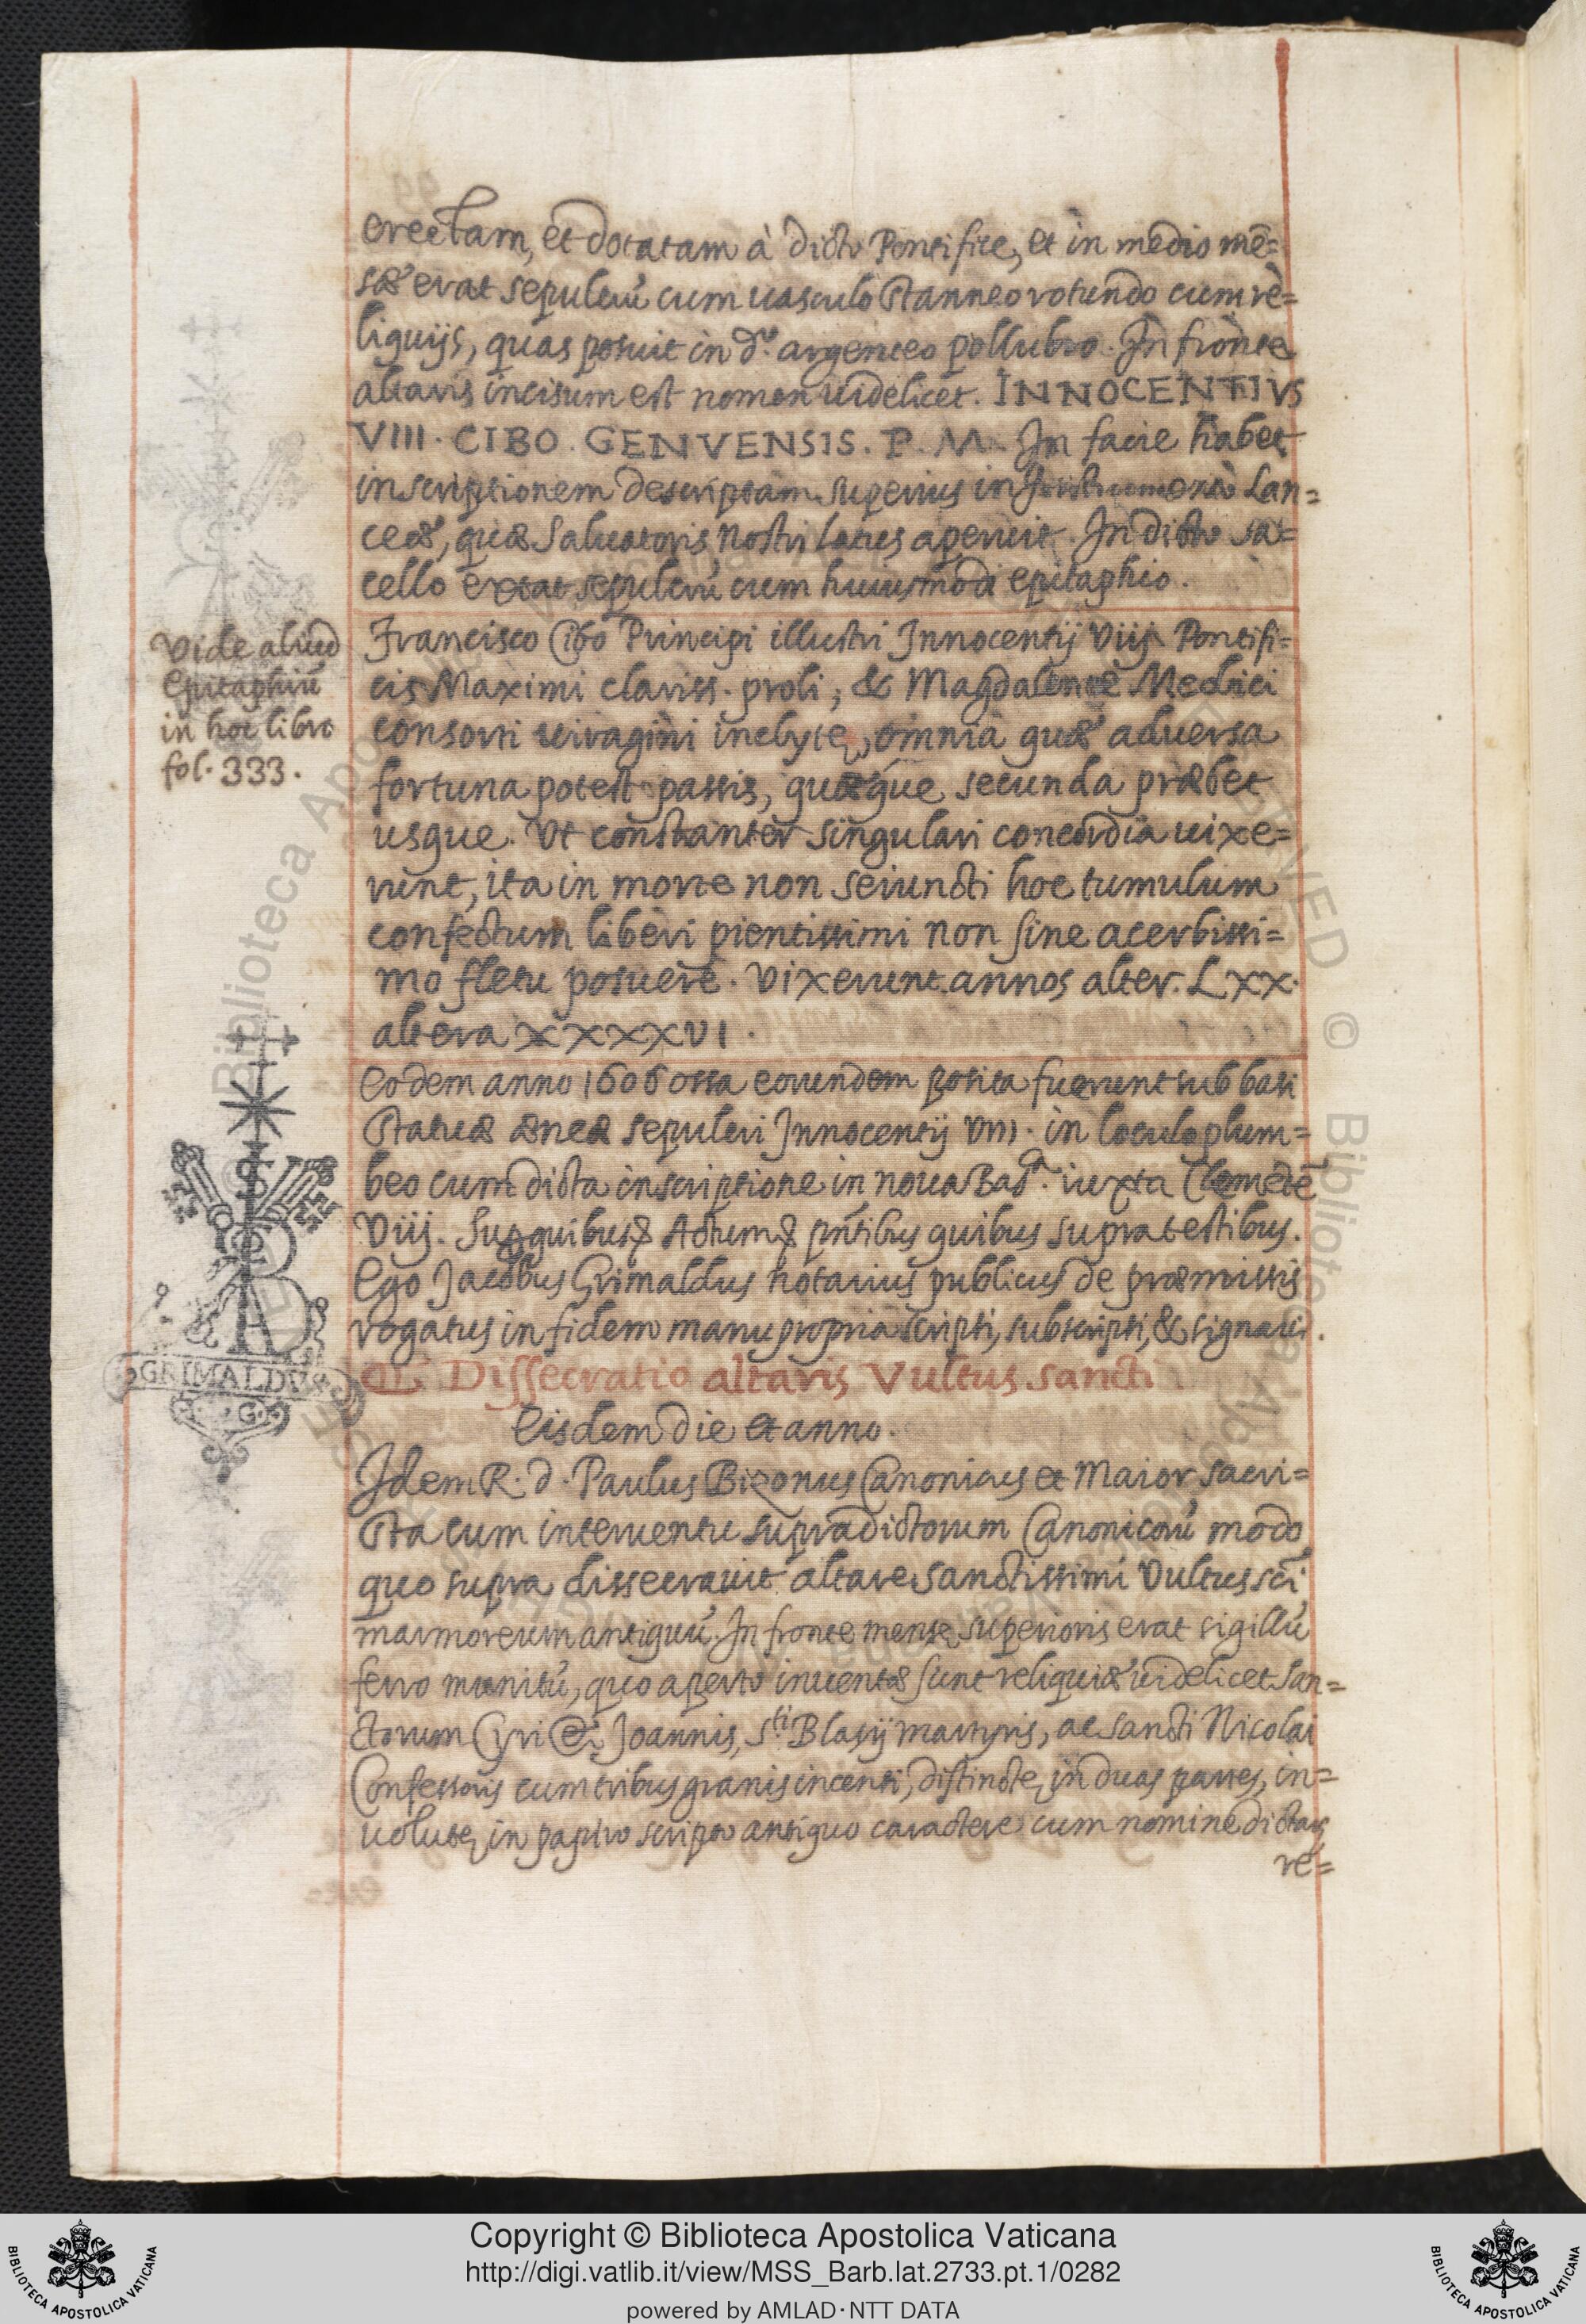 erectam, et dotatam à dicto Pontifice, et in medio mē=
sæ erat sepulcrū cum uasculo stanneo rotundo cum re=
liquijs, quas posuit in d.º argenteo pollubro. In fronte
altaris incisum est nomen uidelicet. INNOCENTIVS
VIII. CIBO. GENVENSIS. P. M. In facie habet
inscriptionem descriptam superius in Lan=
ceæ, quæ Saluatoris nostri latus aperuit. In dicto sa=
cello extat sepulcrū cum huiusmodi epitaphio.
Vide aliud
Epitaphiū
in hoc libro
fol. 333.
Francisco Cibo Principi illustri Innocentij Viij Pontifi=
cis Maximi clariss. proli, & Magdalenæ Medici
consorti uiragini inclytę, omnia quæ aduersa
fortuna potest passis, quæque secunda præbet
usque. Vt constanter singulari concordia uixe=
runt, ita in morte non seiuncti hoc tumulum
confectum liberi pientissimi non sine acerbissi=
mo fletu posuere. Vixerunt annos alter. LXX.
altera XXXXVI.
Eodem anno 1606 ossa eorundem posita fuerunt sub basi
statuæ æneæ sepulcri Innocentij VIII. in loculo plum=
beo cum dicta inscriptione in noua Bas.ca iuxta Clemētē
Viij. Sup quibus Actum pñtibus quibus supra testibus.
Ego Jacobus Grimaldus notarius publicus de præmissis
rogatus in fidem manu propria scripsi, subscripsi, & signaui.
GRIMALDVS
G.
Dissecratio altaris Vultus sancti
Eisdem die et anno.
Idem R. d. Paulus Bizonus Canonicus et Maior sacri=
sta cum interuentu supradictorum Canonicorū modo
quo supra dissecrauit altare sanctissimi Vultus sci
marmoreum antiquū. In fronte mensę superioris erat sigillū
ferro munitū, quo aperto inuentæ sunt reliquiæ uidelicet San=
ctorum Cyri & Joannis, S.ti Blasij martyris, ac sancti Nicolai
Confessoris cum tribus granis incensi, distinctę in duas partes, in=
uolutę in papiro scripto antiquo caractere cum nomine dictarꝫ
re=
Copyright © Biblioteca Apostolica Vaticana
http://digi.vatlib.it/view/MSS_Barb.lat.2733.pt.1/0282
powered by AMLAD·NTT DATA
BIBLIOTECA APOSTOLICA VATICANA
BIBLIOTECA APOSTOLICA VATICANA